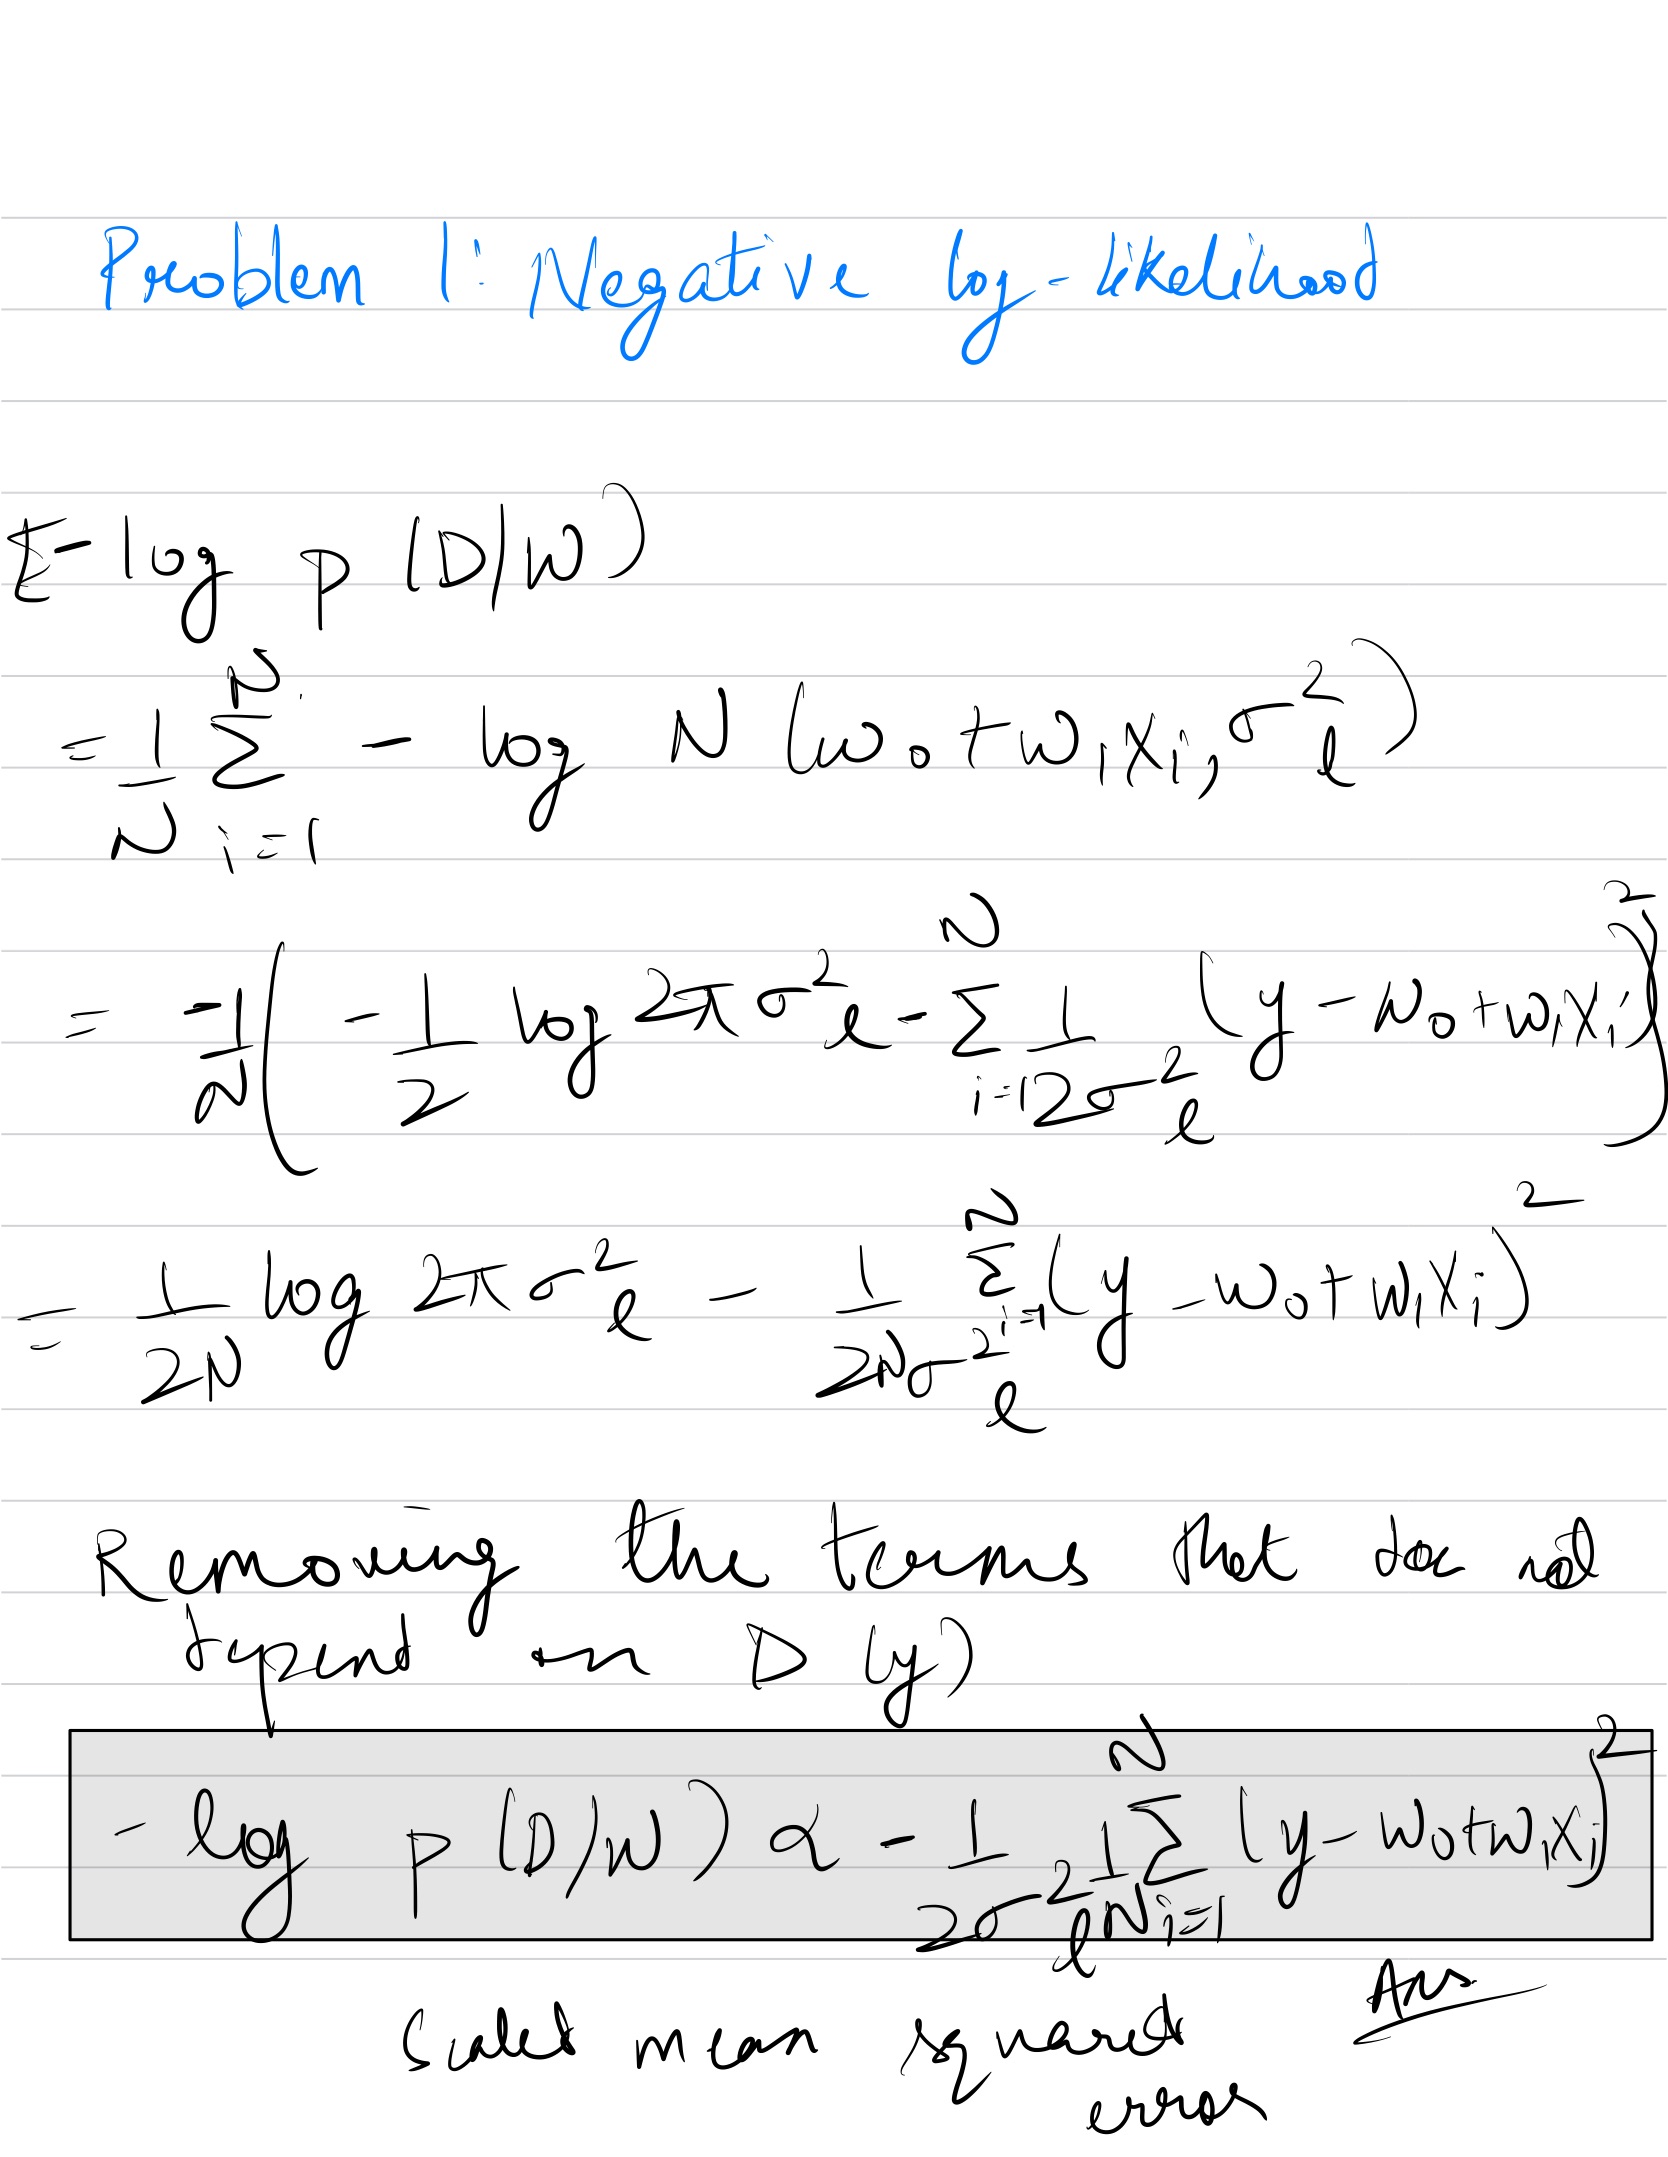 Problem 1: Negative log-likelihood
E - log p (D/W)
= 1/N Σ_{i=1}^{N} - log N (w₀ + w₁xᵢ, σ²ₑ)
= -1/N ( - 1/2 log 2πσ²ₑ - Σ_{i=1}^{N} 1/2σ²ₑ (y - w₀ + w₁xᵢ)² )
= 1/2N log 2πσ²ₑ - 1/2Nσ²ₑ Σ_{i=1}^{N} (y - w₀ + w₁xᵢ)²
Removing the terms that doe not
depend on D (y)
- log p (D/W) ∝ - 1/2σ²ₑ 1/N Σ_{i=1}^{N} (y - w₀ + w₁xᵢ)²
Ans
Scaled mean squared
error